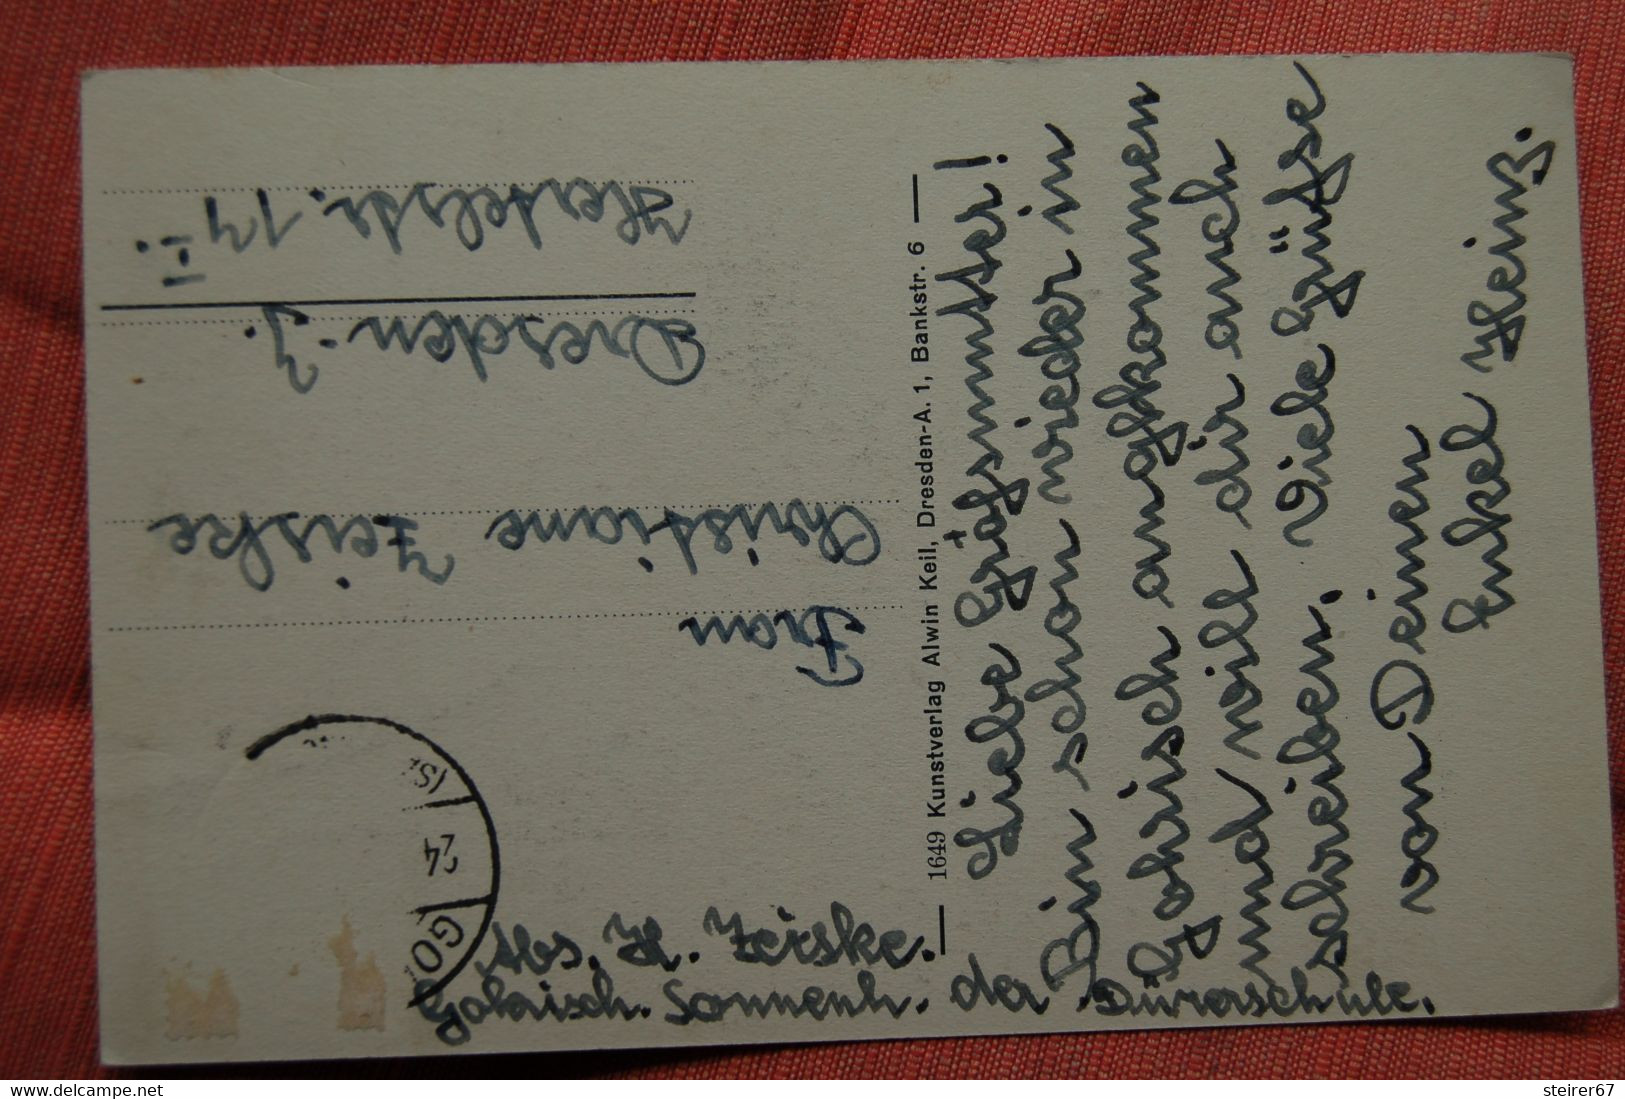 Liebe Großmutter!
Bin schon wieder in
Gohrisch angekommen
und will dir auch
schreiben. Viele Grüße
von Deinen
Enkel Heinz.
1649 Kunstverlag Alwin Keil, Dresden-A. 1, Bankstr. 6
Frau
Christiane Zeiske
Dresden. J.
Hertelstr. 14 II.
Abs. H. Zeiske.
Gohrisch. Sonnenh. der Dürerschule.
GO
24
delcampe.net
steirer67